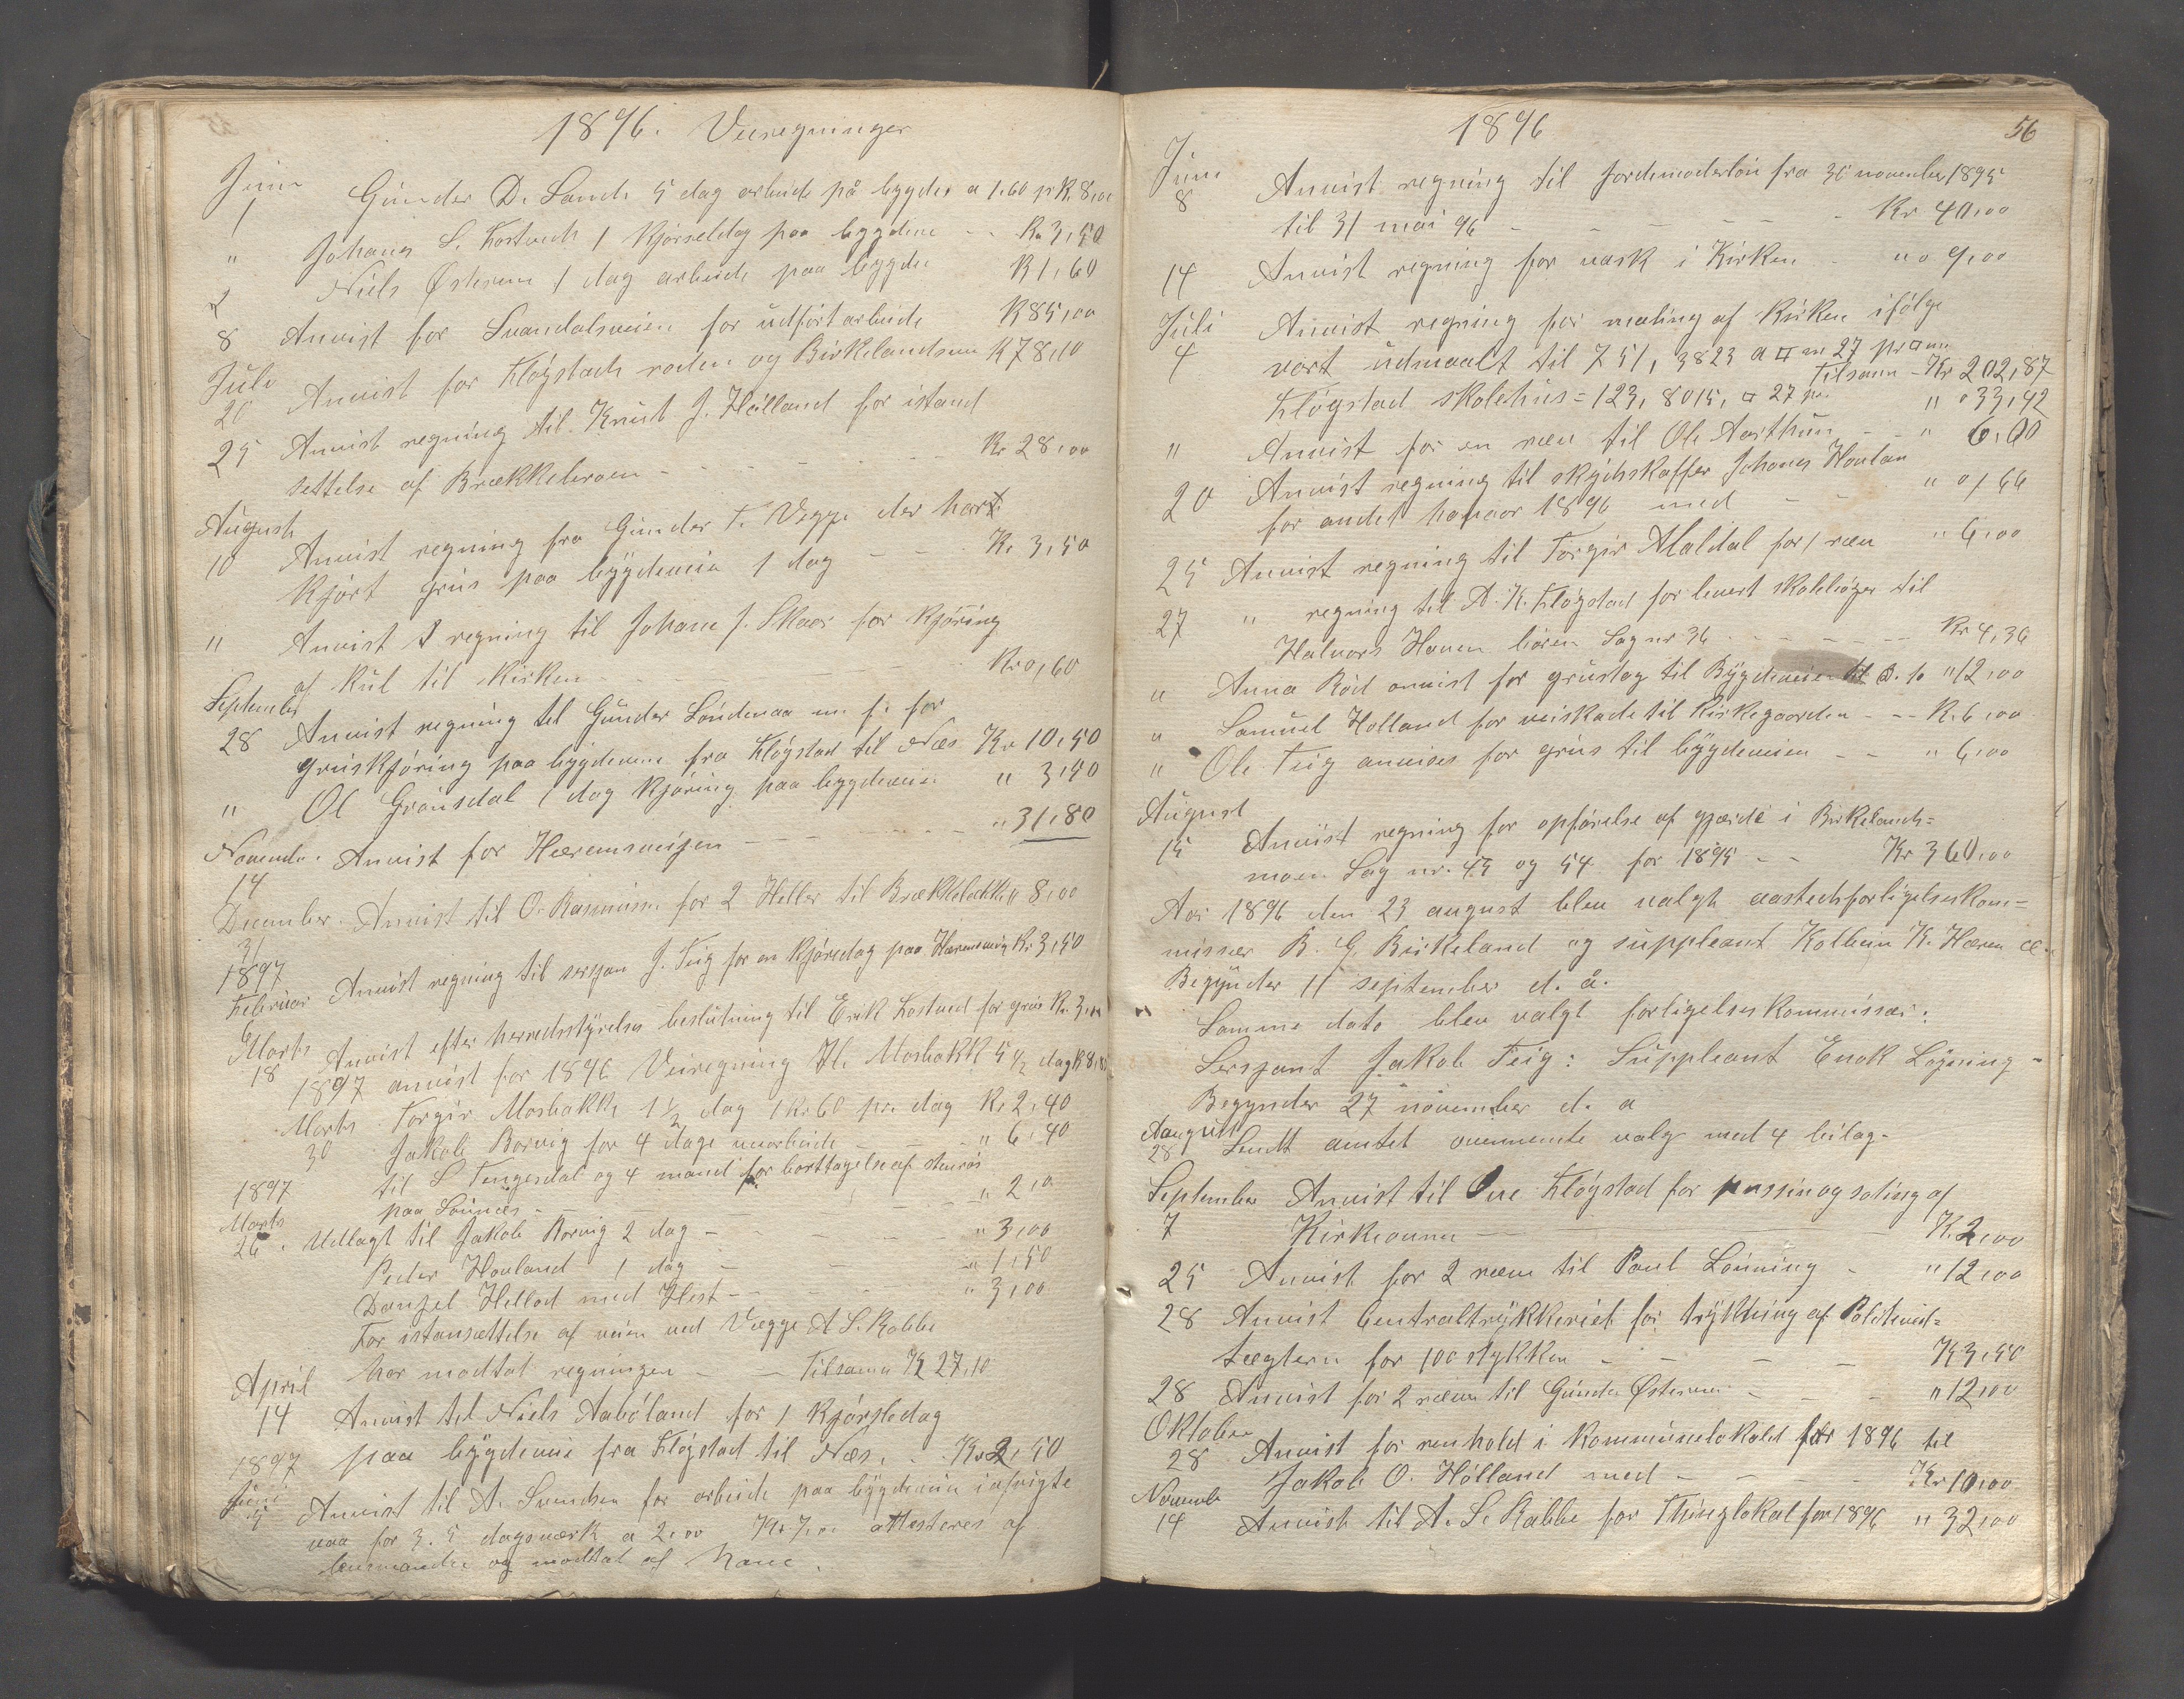 1896. Veiregninger
Juni
1 Gunder D. Sand 5 dag arbeide på bygdev a 1.60 pr K. 8,00
" Johanes S. Fostveth 1 Kjørseldag paa bygdevei - - Kr 3,50
2 Niels Østrem 1 dag arbeide paa bygdev K 1,60
8 Anvist for Svandalsveien for udført arbeide K 85,00
Juli
20 Anvist for Fløgstads roden og Birkelandsmo K 78,10
25 Anvist regning til Knut J. Hølland for istand
settelse af Brækkebroen - - - - Kr 28,00
August
10 Anvist regning fra Gunder T. Vegge der har
Kjørt grus paa bygdeveien 1 dag - - - Kr 3,50
" Anvist regning til Johane J. Skaar for Kjøring
af Kul til Kirken - - - Kr 0,60
September
28 Anvist regning til Gunder Løndenaa m. f. for
gruskjøring paa bygdeveien fra Fløgstad til Næs Kr 10,50
" Ol Grønsdal 1 dag Kjøring paa bygdeveien " 3,90
Novemb. Anvist for Hæremsveigen - - - " 31,80
14
December. Anvist til O. Rasmussen for 2 Heller til " 8,00
31
1897
Februar Anvist regning til sersjan J. Teig for en Kjøredag paa Hæremsveig Kr 3,50
Marts Anvist efter herredsstyrelses beslutning til Erik Fostved for grus Kr. 3,00
18 1897 anvist for 1896 Veiregning H. Mosbakk 5 1/2 dag K 8,
Marts Torgir Mosbakk 1 1/2 dag 1 Kr 60 pr. dag K. 2,40
30 Jakob Rorvig for 4 dage veiarbeide - - - " 6,40
1897 til S Tengesdal og 4 mand for borttagelse af stenrøs
Marts paa Lønnes - - - " 2,0
26. Udlagt til Jakob Rorvig 2 dag - - - " 3,00
Peder Hovland 1 dag - - " 1,50
Danjel Hellad med Hest - - - " 3,00
For istansættelse af veien ved Vægge A S. Rabbe
April har modtat regningen - - Tilsamn Kr 27,10
14 Anvist til Niels Aabøland for 1 Kjørsledag
1897 paa bygdeveie fra Fløgstad til Næs. . . Kr 2,50
Juni
5 Anvist til A. Svendsen for arbeide paa bygdeveien i afvigte
vaa for 3.5 dagsværk a 2,00 Kr 7,00 attesteres af
lensmanden og modtat af ham.
1896 56
Juni
8 Anvist regning til Jordemoderløn fra 30 november 1895
til 31 mai 96 - - - - - Kr 40,00
14 Anvist regning for vask i Kirken - " " 9,00
Juli Anvist regning for maling af Kirken ifølge
4 vort udmaalt til 751, 3823 a □ m 27 pr □ m
Tilsamn - Kr 202,87
Fløgstad skolehus = 123, 8015, □ 27 pr. " " 33,42
" Anvist for en ræv til Ol Aarthun - - " 6,00
20 Anvist regning til skydsskaffer Johanes Hovlan
for andet halvaar 1896 med - - " " 1,66
25 Anvist regning til Torgir Maldal for 1 ræv " 6,00
27 " regning til A. K. Fløgstad for levert skolebøger til
Halvars Haven børen Sag nr 36 - - - - Kr 4,36
" Anna Rød anvist for grustag til Bygdeveien " 12,00
" Samuel Holland for veiskade til Kirkegaarden - - K. 6,00
" Ole Teig anvises for grus til bygdeveien - - " 6,00
August
15 Anvist regning for opførelse af gjærde i Birkelands=
moen Sag nr. 45 og 54 for 1895 - - Kr 360,00
Aar 1896 den 23 august blev valgt vasdedsforligelseskom=
missær B. G. Birkeland og suppleant Kolbein K. Hæren
Begynder 11 september d. å.
Samme dato blev valgt forligelseskommissær:
Sersjant Jakob Teig: Suppleant Enok Løgning -
Begynder 27 november d. a
August
28 Sendt amtet ovennevnte valg med 4 bilag.
September Anvist til Ove Fløgstad for pussing og soting af
7 Kirkeovnen - - - K. 2,00
25 Anvist for 2 ræve til Paul Lønning - " 12,00
28 Anvist Centraltrykkeriet for trykking af Politived=
tægtern for 100 stykken - - - K 3,50
28 Anvist for 2 ræve til Gunder Østrem - - - " 12,00
Oktober
28 Anvist for renhold i Kommunelokalet for 1896 til
Jakob O. Hølland med - - - Kr 10,00
Novemb
14 Anvist til A. S. Rabbe for Thinglokal for 1896 " 32,00